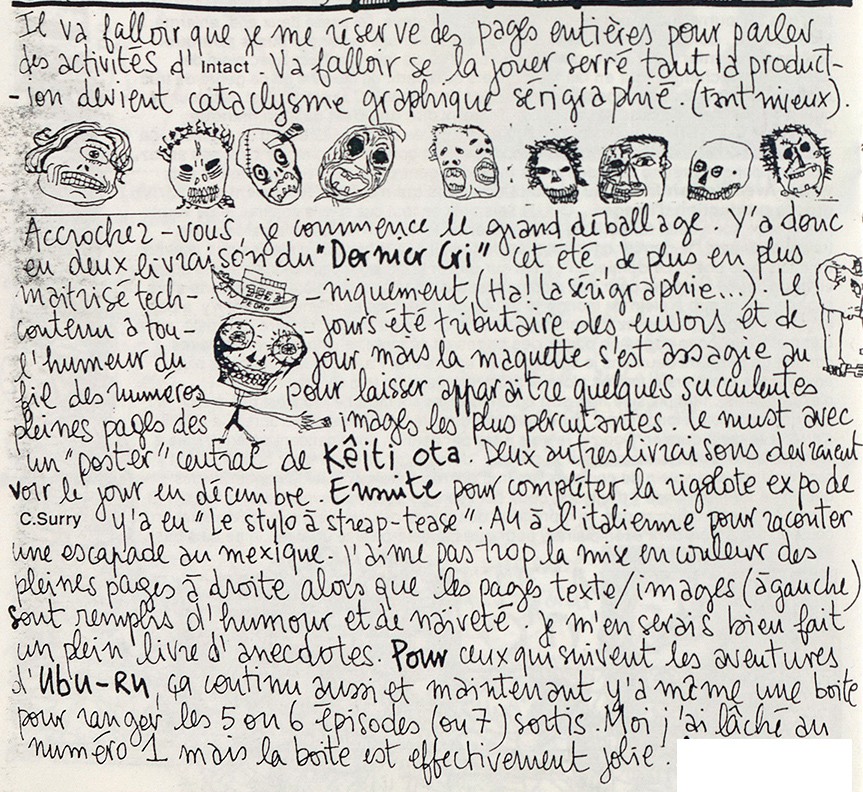 Il va falloir que je me réserve des pages entières pour parler
des activités d'Intact. Va falloir se la jouer serré tant la product-
-ion devient cataclysme graphique sérigraphié. (tant mieux).
Accrochez-vous, je commence le grand déballage. Y'a donc
eu deux livraison du "Dernier Cri" cet été, de plus en plus
maitrisé tech- -niquement (Ha! la sérigraphie...). Le
SAN PEDRO
contenu à tou- -jours été tributaire des envois et de
l'humeur du jour mais la maquette s'est assagie au
fil des numeros pour laisser apparaitre quelques succulentes
pleines pages des images les plus percutantes. Le must avec
un "poster" central de Kêiti ota. Deux autres livraisons devraient
voir le jour en décembre. Ensuite pour compléter la rigolote expo de
C.Surry y'a eu "Le stylo à streap-tease". A4 à l'italienne pour raconter
une escapade au mexique. J'aime pas trop la mise en couleur des
pleines pages à droite alors que les pages texte/images (à gauche)
sont remplis d'humour et de naïveté. Je m'en serais bien fait
un plein livre d'anecdotes. Pour ceux qui suivent les aventures
d'Ubu-Ru, ça continu aussi et maintenant y'a même une boite
pour ranger les 5 ou 6 épisodes (ou 7) sortis. Moi j'ai lâché au
numéro 1 mais la boite est effectivement jolie.